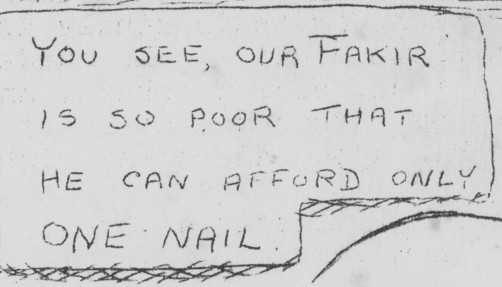 YOU SEE, OUR FAKIR
IS SO POOR THAT
HE CAN AFFORD ONLY
ONE NAIL.